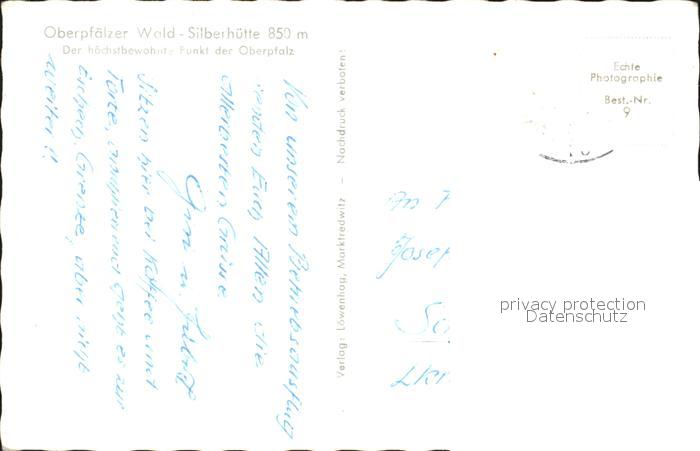 Oberpfälzer Wald - Silberhütte 850 m
Der höchstbewohnte Punkt der Oberpfalz
Von unserem Betriebsausflug
senden Euch Allen die
allerbesten Grüße
u.
Sitzen hier bei Kaffee und
Torte, anschließend geht es zur
Grenze, aber nicht
weiter!!
Verlag: Löwenhag, Marktredwitz – Nachdruck verboten!
Echte
Photographie
Best.-Nr.
9
An
Josef
Lkr.
privacy protection
Datenschutz